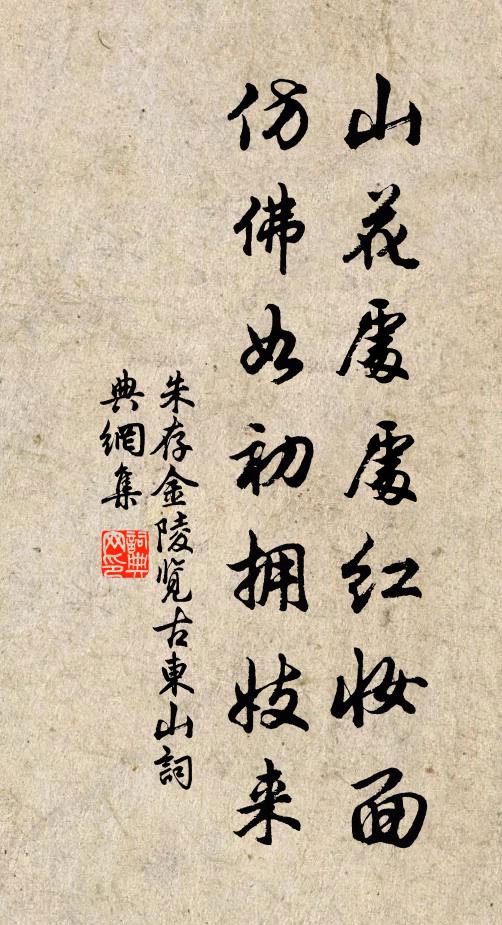 山花處處红妝面
仿佛如初拥妓来
朱存金陵览古東山詞
典網集
詞典网印